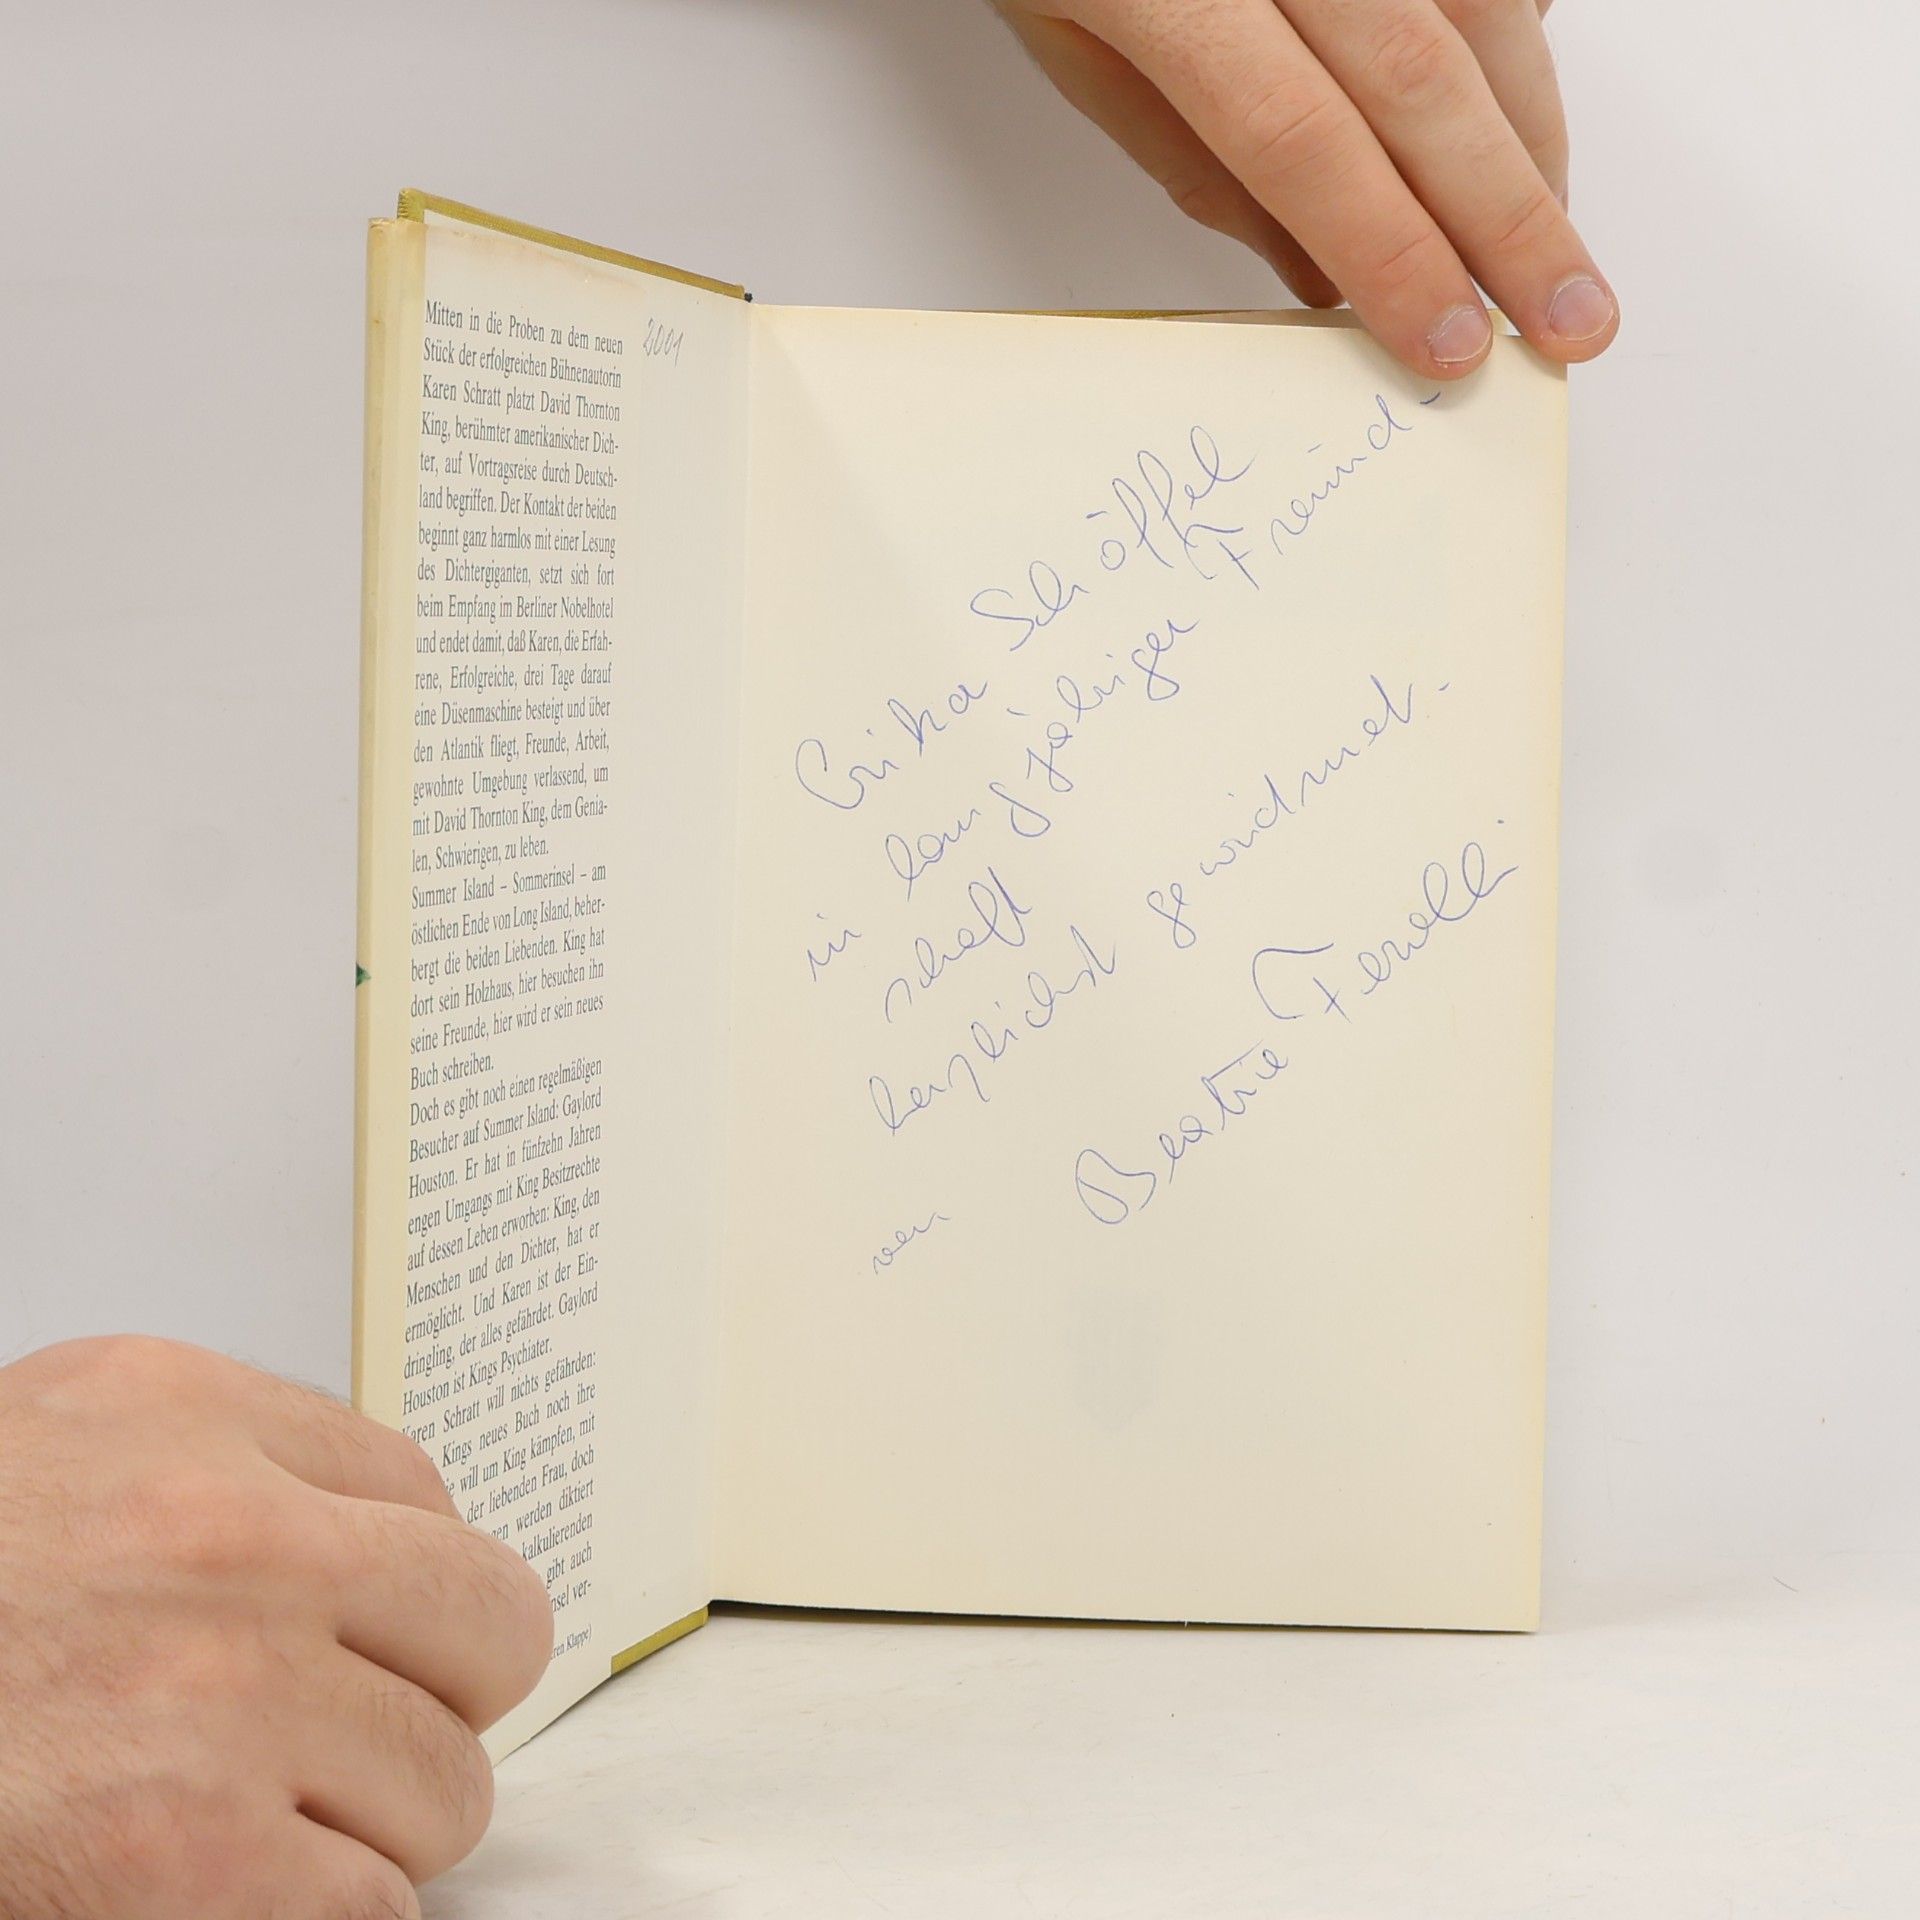 Mitten in die Proben zu dem neuen
Stück der erfolgreichen Bühnenautorin
Karen Schratt platzt David Thornton
King, berühmter amerikanischer Dich-
ter, auf Vortragsreise durch Deutsch-
land begriffen. Der Kontakt der beiden
beginnt ganz harmlos mit einer Lesung
des Dichtergiganten, setzt sich fort
beim Empfang im Berliner Nobelhotel
und endet damit, daß Karen, die Erfah-
rene, Erfolgreiche, drei Tage darauf
eine Düsenmaschine besteigt und über
den Atlantik fliegt, Freunde, Arbeit,
gewohnte Umgebung verlassend, um
mit David Thornton King, dem Genia-
len, Schwierigen, zu leben.
Summer Island – Sommerinsel – am
östlichen Ende von Long Island, beher-
bergt die beiden Liebenden. King hat
dort sein Holzhaus, hier besuchen ihn
seine Freunde, hier wird er sein neues
Buch schreiben.
Doch es gibt noch einen regelmäßigen
Besucher auf Summer Island: Gaylord
Houston. Er hat in fünfzehn Jahren
engen Umgangs mit King Besitzrechte
auf dessen Leben erworben: King, den
Menschen und den Dichter, hat er
ermöglicht. Und Karen ist der Ein-
dringling, der alles gefährdet. Gaylord
Houston ist Kings Psychiater.
Karen Schratt will nichts gefährden:
Kings neues Buch noch ihre
will um King kämpfen, mit
der liebenden Frau, doch
werden diktiert
kalkulierenden
gibt auch
nsel ver-
eren Klappe)
2001
Erika Schöffel
in langjähriger Freund-
schaft
herzlichst gewidmet.
von Beatrice Ferolli.